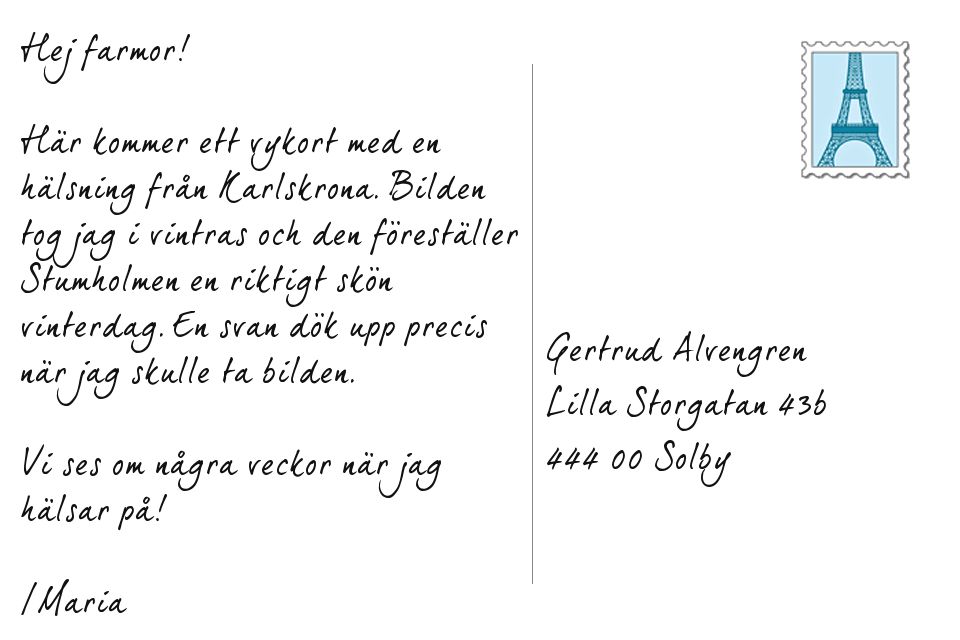 Hej farmor!
Här kommer ett vykort med en
hälsning från Karlskrona. Bilden
tog jag i vintras och den föreställer
Stumholmen en riktigt skön
vinterdag. En svan dök upp precis
när jag skulle ta bilden.
Vi ses om några veckor när jag
hälsar på!
/Maria
Gertrud Alvengren
Lilla Storgatan 43b
444 00 Solby